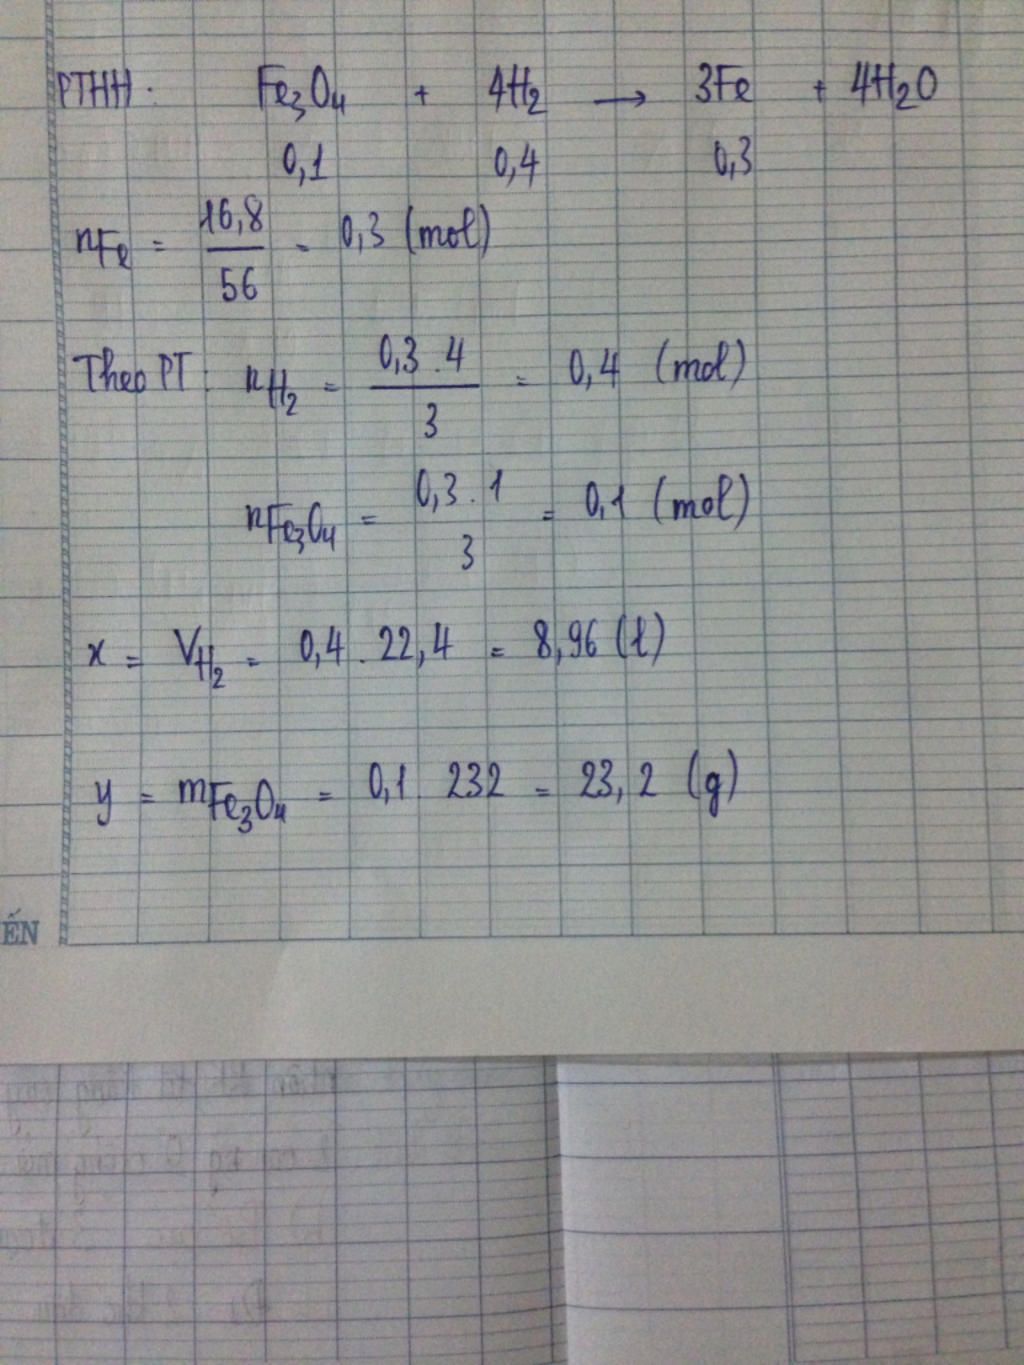 PTHH. Fe3O4 + 4H2 → 3Fe + 4H2O
0,1 0,4 0,3
nFe = 16,8/56 = 0,3 (mol)
Theo PT: nH2 = 0,3.4/3 = 0,4 (mol)
nFe3O4 = 0,3.1/3 = 0,1 (mol)
x = VH2 = 0,4.22,4 = 8,96 (l)
y = mFe3O4 = 0,1.232 = 23,2 (g)
ẾN